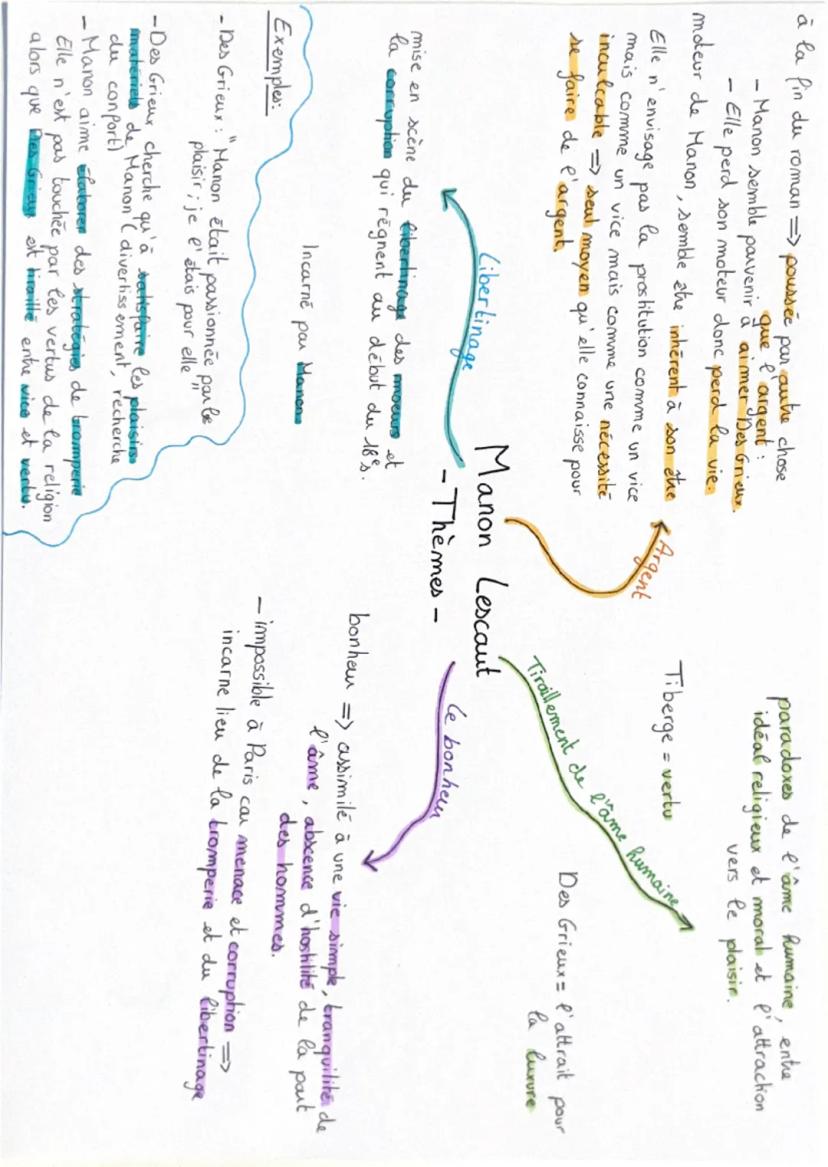 Manon Lescaut
- Thèmes -
Argent
à la fin du roman => poussée par autre chose
que l'argent :
- Manon semble parvenir à aimer Des Grieux.
- Elle perd son moteur donc perd la vie.
moteur de Manon, semble être inhérent à son être
Elle n'envisage pas la prostitution comme un vice
mais comme un vice mais comme une nécessité
inculcable => seul moyen qu'elle connaisse pour
se faire de l'argent.
Libertinage
mise en scène du libertinage des moeurs et
la corruption qui règnent au début du 18e s.
Incarné par Manon
Exemples:
- Des Grieux : "Manon était passionnée par le
plaisir ; je l'étais pour elle"
- Des Grieux cherche qu'à satisfaire les plaisirs
matériels de Manon (divertissement, recherche
du confort)
- Manon aime élaborer des stratégies de tromperie
Elle n'est pas touchée par les vertus de la religion
alors que Des Grieux est tiraillé entre vice et vertu.
Tiraillement de l'âme humaine
paradoxes de l'âme humaine, entre
idéal religieux et moral et l'attraction
vers le plaisir.
Tiberge = vertu
Des Grieux = l'attrait pour
la luxure
Le bonheur
bonheur => assimilé à une vie simple, tranquilité de
l'âme, absence d'hostilité de la part
des hommes.
- impossible à Paris car menace et corruption =>
incarne lieu de la tromperie et du libertinage